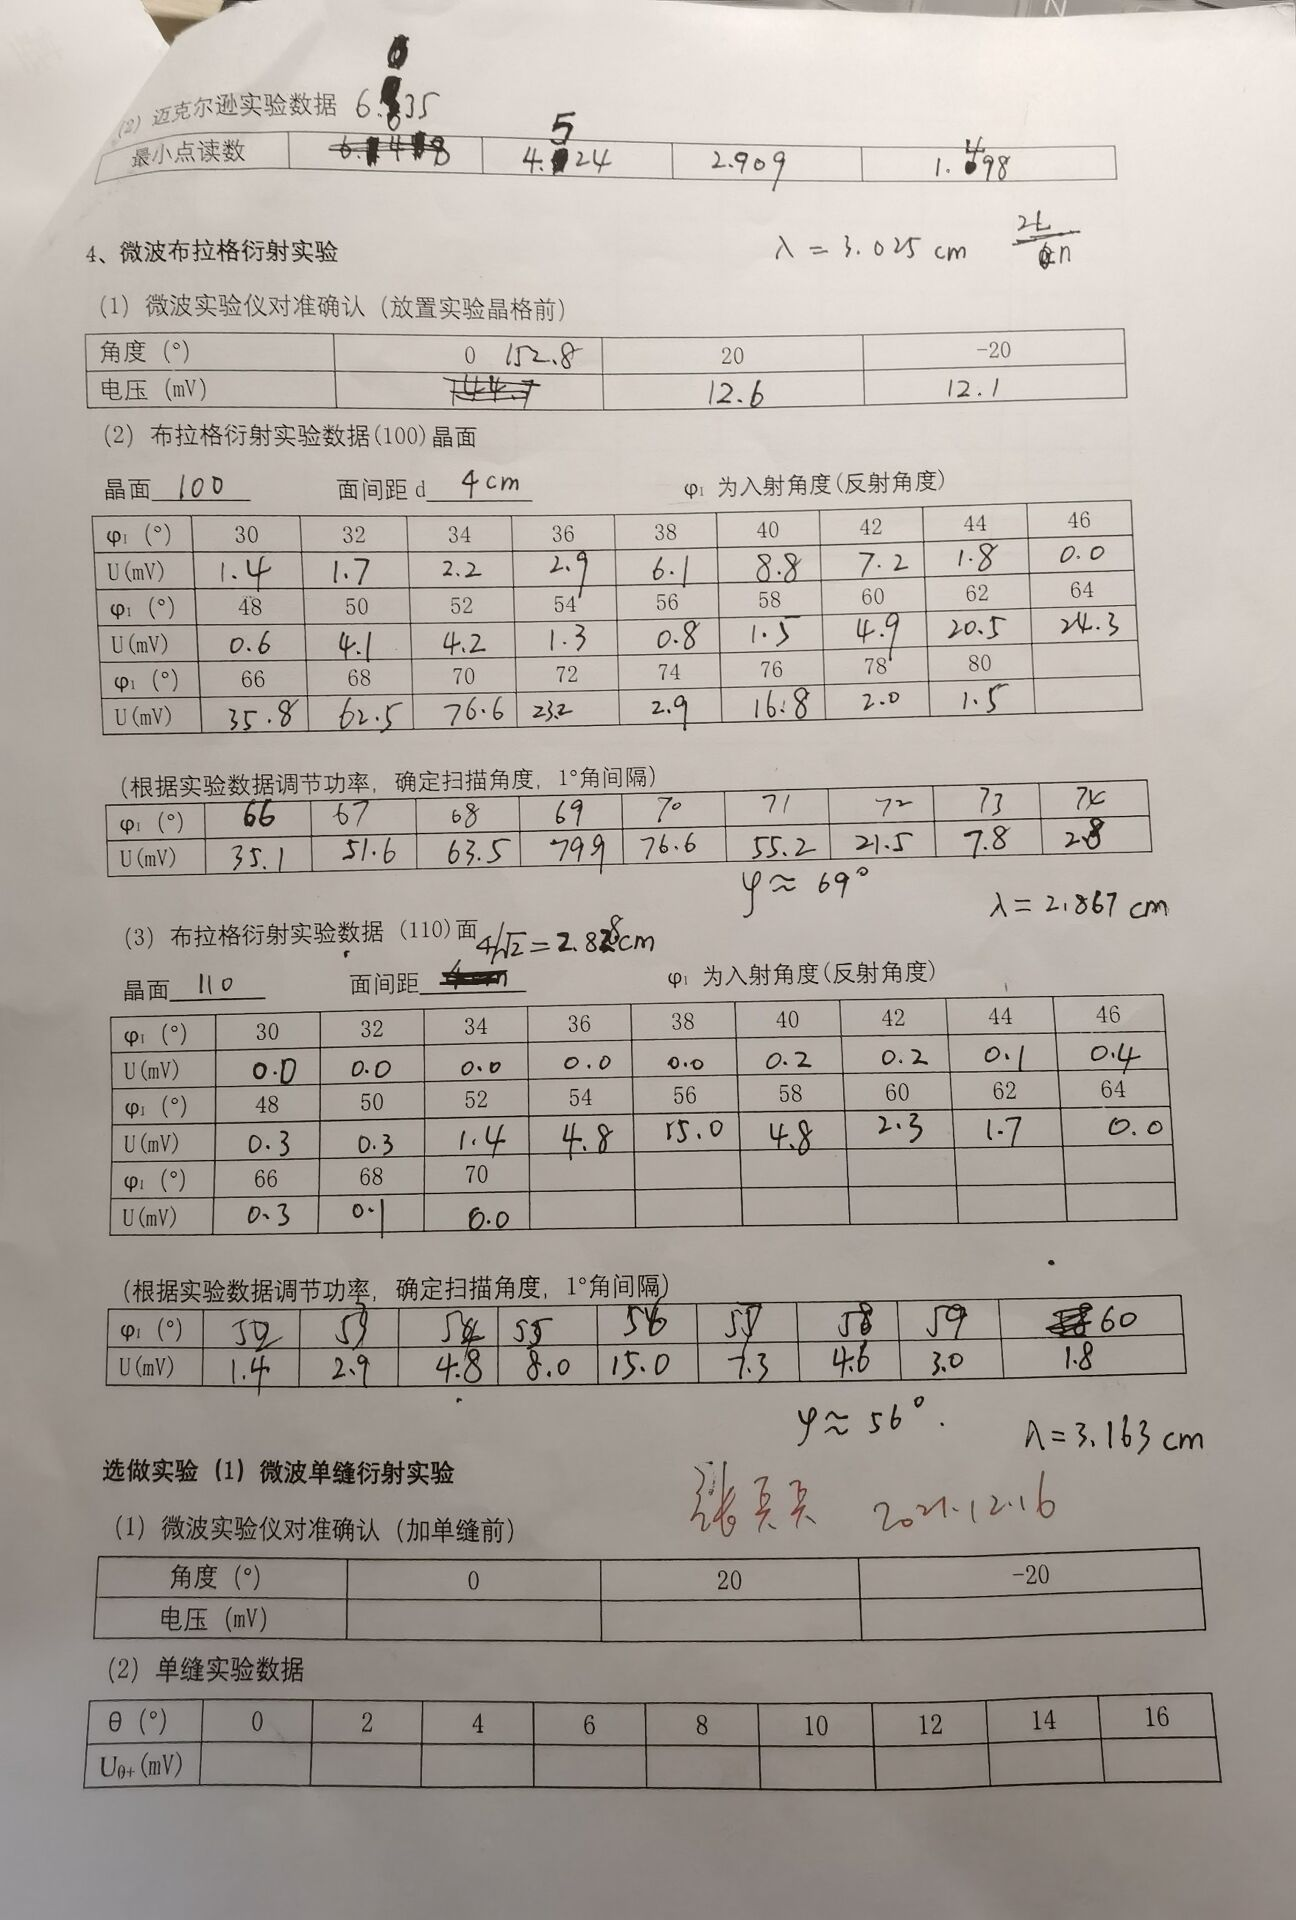 (2) 迈克尔逊实验数据 6.035
最小点读数 4.524 2.909 1.498
λ = 3.025 cm 2L/n
4、微波布拉格衍射实验
(1) 微波实验仪对准确认 (放置实验晶格前)
角度 (°) 0 152.8 20 -20
电压 (mV) 144.7 12.6 12.1
(2) 布拉格衍射实验数据(100)晶面
晶面 100 面间距 d 4cm φ₁ 为入射角度(反射角度)
φ₁ (°) 30 32 34 36 38 40 42 44 46
U(mV) 1.4 1.7 2.2 2.9 6.1 8.8 7.2 1.8 0.0
φ₁ (°) 48 50 52 54 56 58 60 62 64
U(mV) 0.6 4.1 4.2 1.3 0.8 1.5 4.9 20.5 24.3
φ₁ (°) 66 68 70 72 74 76 78 80
U(mV) 35.8 62.5 76.6 23.2 2.9 16.8 2.0 1.5
(根据实验数据调节功率, 确定扫描角度, 1°角间隔)
φ₁ (°) 66 67 68 69 70 71 72 73 74
U(mV) 35.1 51.6 63.5 79.9 76.6 55.2 21.5 7.8 2.8
φ≈ 69°
λ= 2.867 cm
(3) 布拉格衍射实验数据 (110)面 4/√2 = 2.828cm
晶面 110 面间距 4cm φ₁ 为入射角度(反射角度)
φ₁ (°) 30 32 34 36 38 40 42 44 46
U(mV) 0.0 0.0 0.0 0.0 0.0 0.2 0.2 0.1 0.4
φ₁ (°) 48 50 52 54 56 58 60 62 64
U(mV) 0.3 0.3 1.4 4.8 15.0 4.8 2.3 1.7 0.0
φ₁ (°) 66 68 70
U(mV) 0.3 0.1 0.0
(根据实验数据调节功率, 确定扫描角度, 1°角间隔)
φ₁ (°) 52 53 54 55 56 57 58 59 60
U(mV) 1.4 2.9 4.8 8.0 15.0 7.3 4.6 3.0 1.8
φ≈ 56°.
λ=3.163 cm
选做实验 (1) 微波单缝衍射实验
2021.12.16
(1) 微波实验仪对准确认 (加单缝前)
角度 (°) 0 20 -20
电压 (mV)
(2) 单缝实验数据
θ (°) 0 2 4 6 8 10 12 14 16
Uθ+(mV)